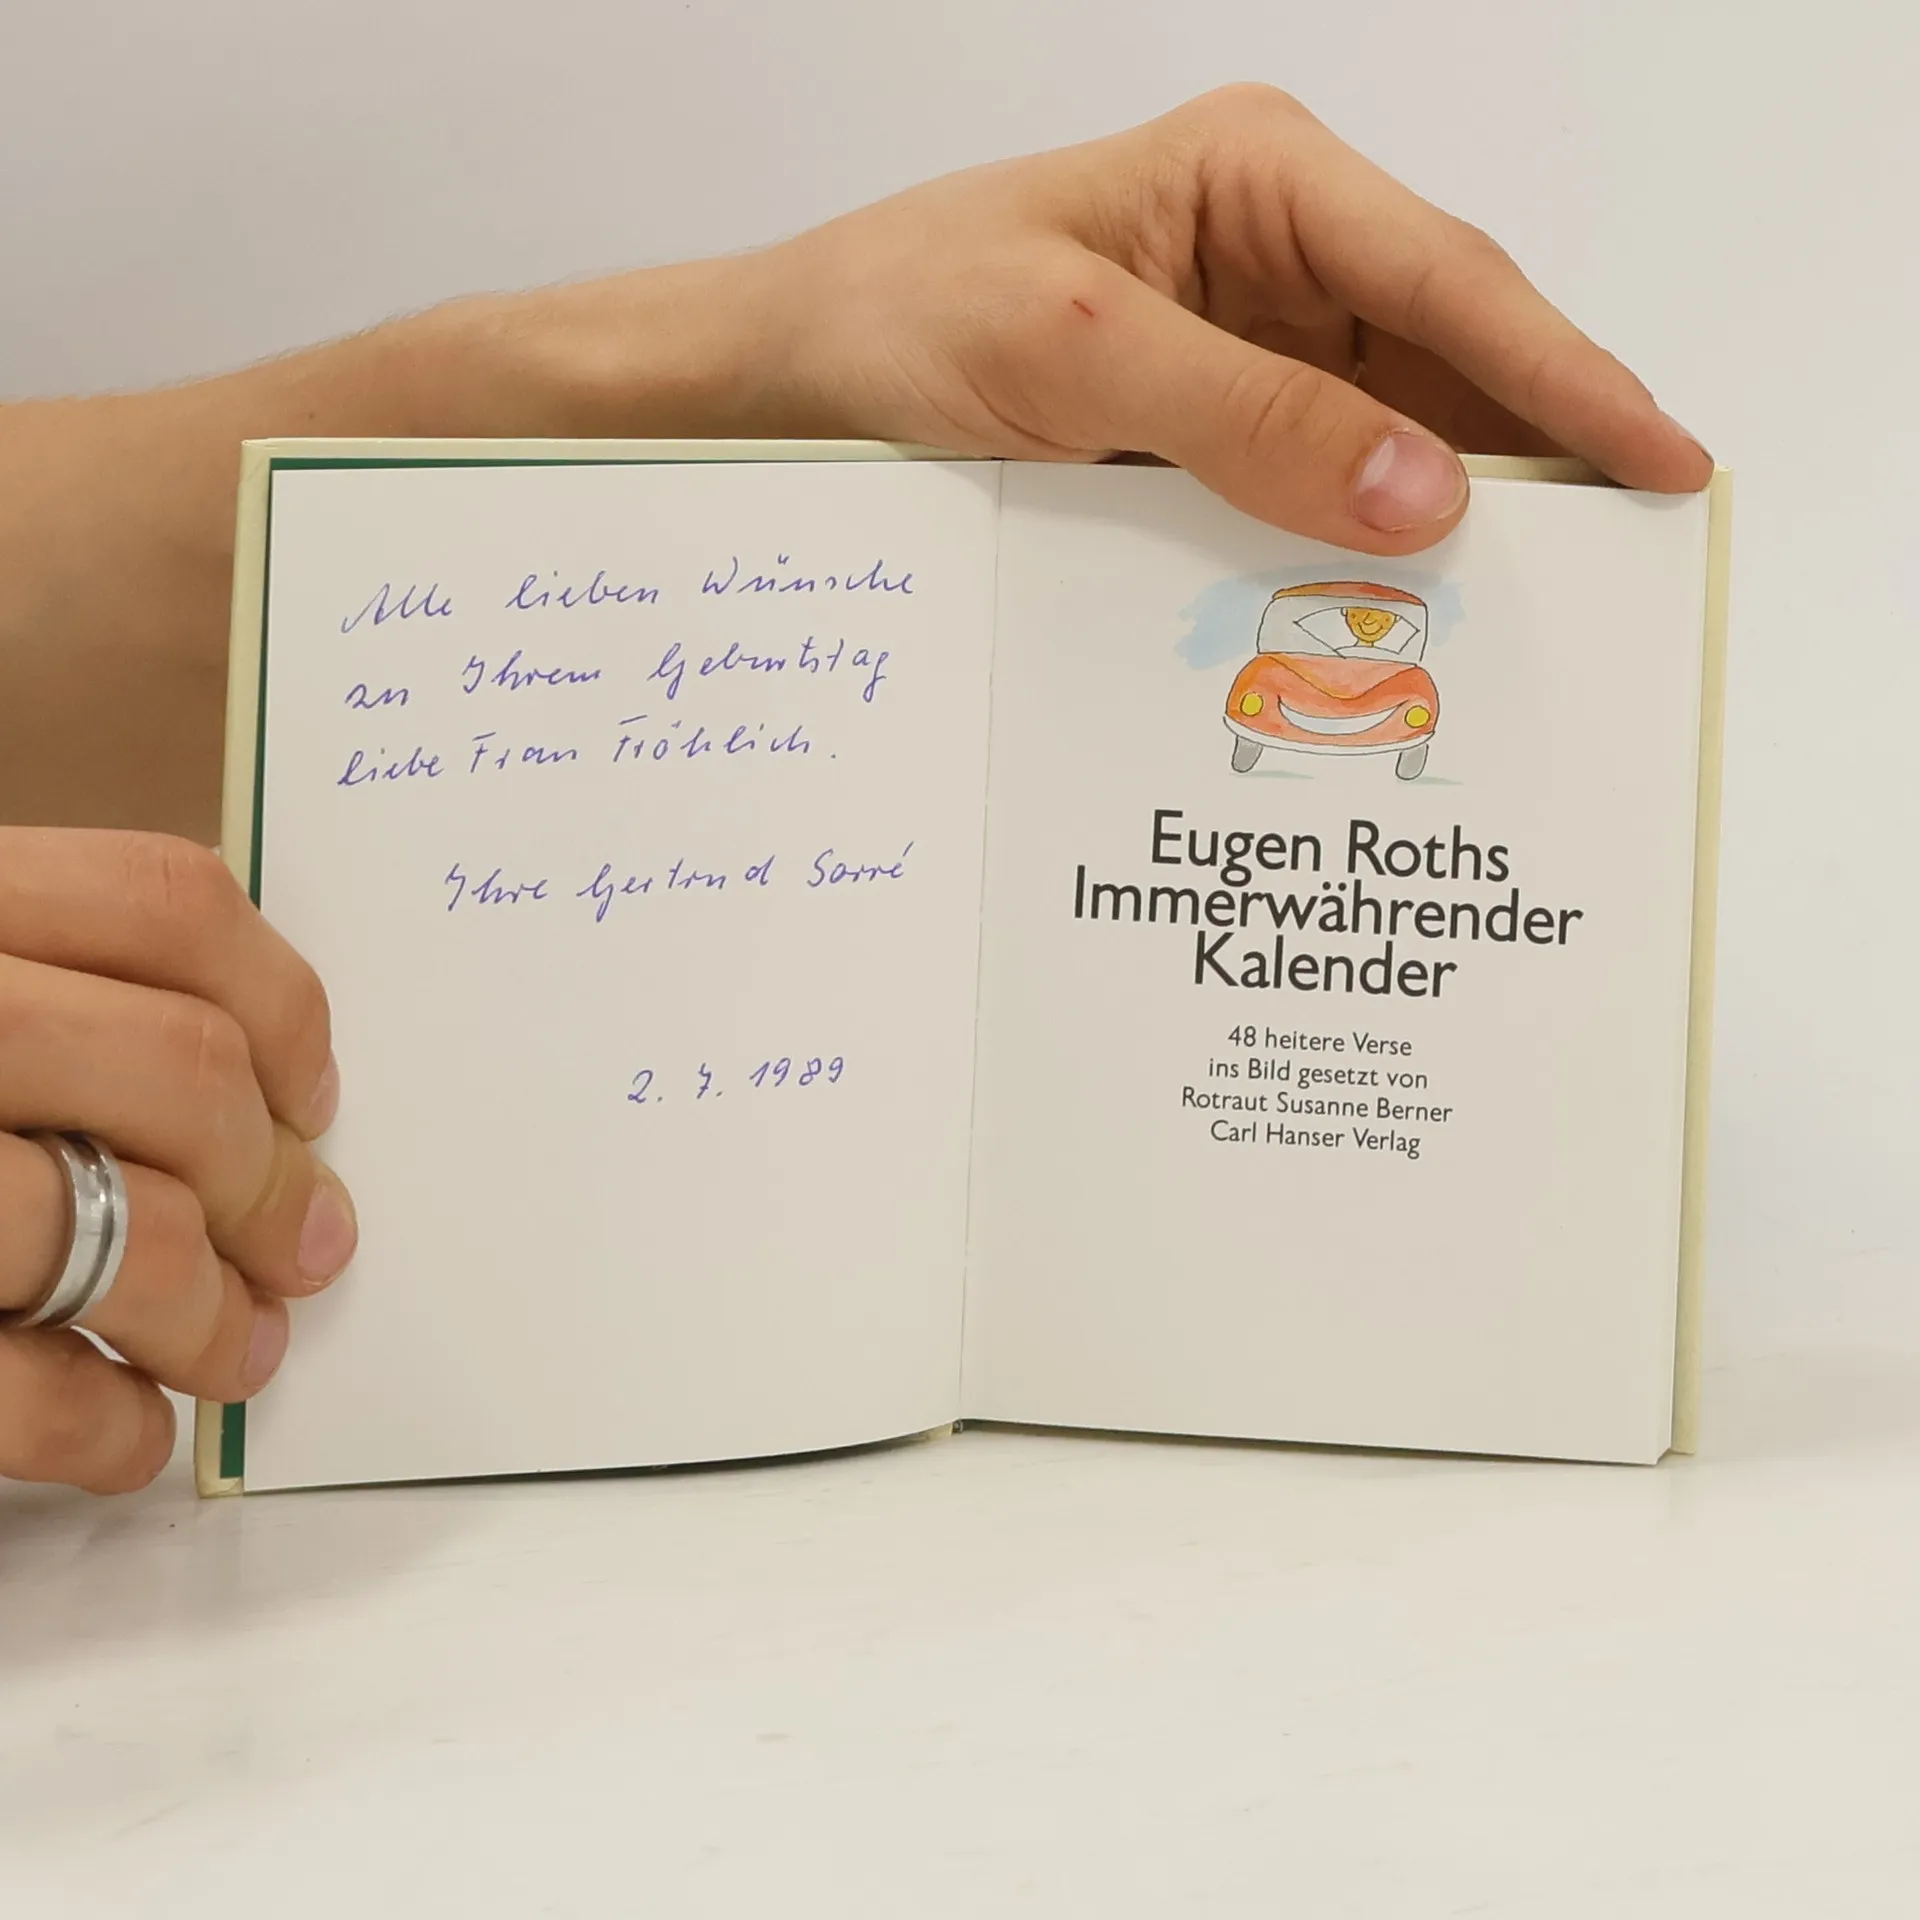 Alle lieben Wünsche
zu Ihrem Geburtstag
liebe Frau Fröhlich.
Ihre Gertrud Sorré
2. 7. 1989
Eugen Roths
Immerwährender
Kalender
48 heitere Verse
ins Bild gesetzt von
Rotraut Susanne Berner
Carl Hanser Verlag